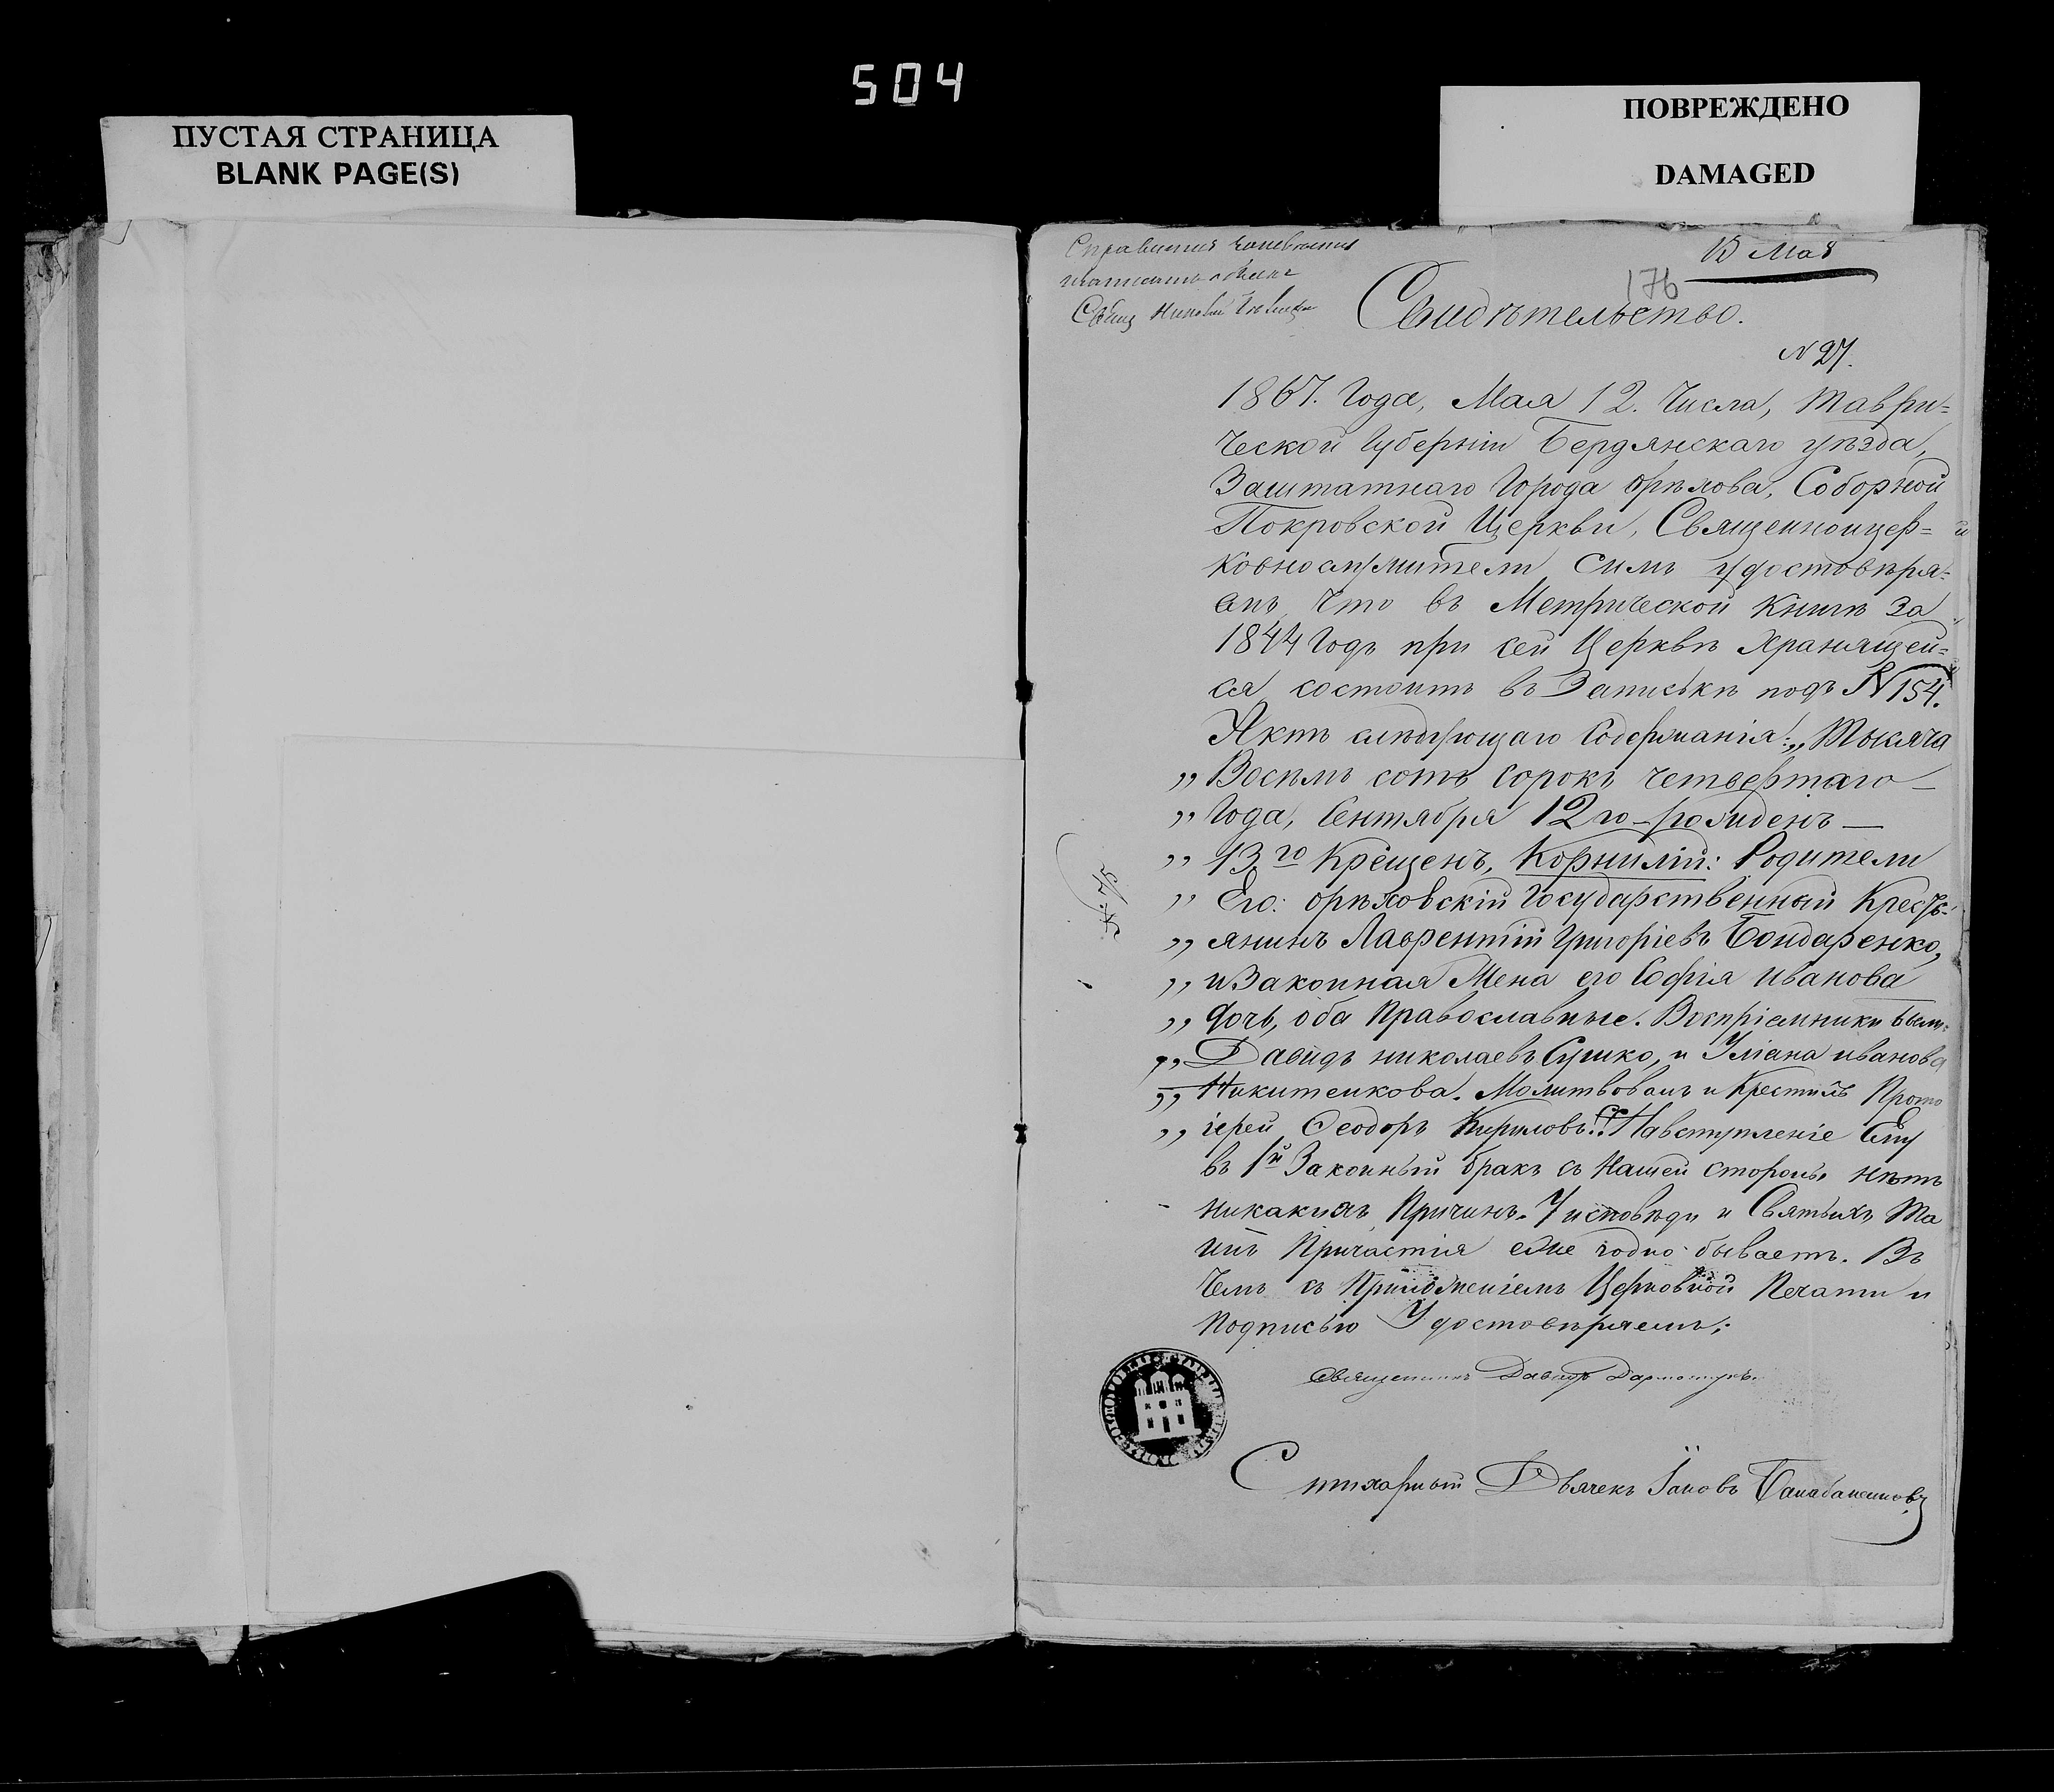 504
ПУСТАЯ СТРАНИЦА
BLANK PAGE(S)
ПОВРЕЖДЕНО
DAMAGED
13 Мая
176
Свидѣтельство.
N 27.
1867. Года, Мая 12. Числа, Таври=
ческой Губерніи Бердянскаго уѣзда,
Заштатнаго Города Орѣхова, Соборной
Покровской Церкви, Священноцер=
ковнослужители симъ удостовѣря=
емъ, что въ Метрической Книгѣ за
1844 Годъ при сей Церквѣ хранящей=
ся состоитъ въ Запискѣ подъ N 154.
Актъ слѣдующаго Содержанія: „Тысяча
„ Восѣмь сотъ сорокъ четвертаго —
„ Года, Сентября 12го — рожденъ —
„ 13го Крещенъ, Корнилій: Родители
„ Его: орѣховскій Государственный Кресть-
„ янинъ Лаврентій Григоріевъ Бондаренко,
„ и Законная Жена его Софія иванова
„ дочь, оба Православные. Воспріемники были:
„ Давидъ николаевъ Сушко, и Уліана иванова
„ Никитенкова. Молитвовалъ и Крестилъ Прото
„ іерей Феодоръ Кириловъ. На вступленіе Ему
въ 1й Законный бракъ съ Нашей стороны нѣтъ
никакихъ Причинъ. У исповѣди и Святыхъ Та
инъ Причастія еже годно бываетъ. Въ
чемъ съ Приложеніемъ Церковной Печати и
Подписью Удостовѣряемъ;
Священникъ Давидъ
Стихарный Дьячекъ Іаковъ